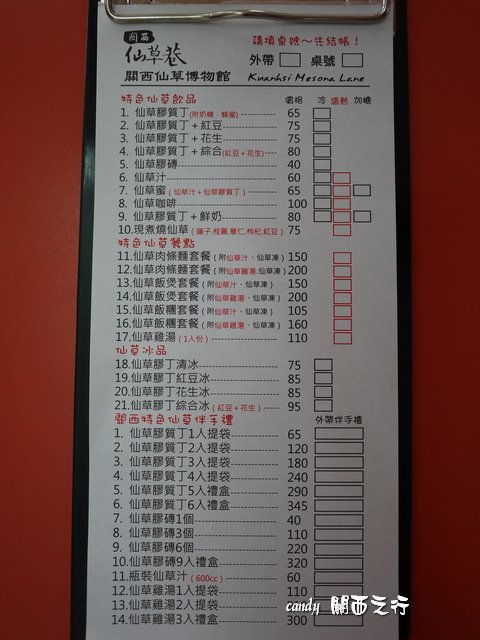 關西
仙草巷
請填桌號～先結帳！
外帶 桌號
關西仙草博物館 Kuanhsi Mesona Lane
特色仙草飲品 價格 冷 溫熱 加糖
1. 仙草膠質丁(附奶精、蜂蜜) 65
2. 仙草膠質丁＋紅豆 75
3. 仙草膠質丁＋花生 75
4. 仙草膠質丁＋綜合(紅豆＋花生) 80
5. 仙草膠磚 40
6. 仙草汁 60
7. 仙草蜜(仙草汁＋仙草膠質丁) 65
8. 仙草咖啡 100
9. 仙草膠質丁＋鮮奶 80
10.現煮燒仙草(蓮子,桂圓,薏仁,枸杞,紅豆) 75
特色仙草餐點
11.仙草肉條麵套餐(附仙草汁、仙草凍) 150
12.仙草肉條麵套餐(附仙草雞湯,仙草凍) 200
13.仙草飯煲套餐(附仙草汁、仙草凍) 150
14.仙草飯煲套餐(附仙草雞湯、仙草凍) 200
15.仙草飯糰套餐(附仙草汁、仙草凍) 105
16.仙草飯糰套餐(附仙草雞湯、仙草凍) 160
17.仙草雞湯(1人份) 110
仙草冰品
18.仙草膠丁清冰 75
19.仙草膠丁紅豆冰 85
20.仙草膠丁花生冰 85
21.仙草膠丁綜合冰(紅豆＋花生) 95
關西特色仙草伴手禮 外帶伴手禮
1. 仙草膠質丁1入提袋 65
2. 仙草膠質丁2入提袋 120
3. 仙草膠質丁3入提袋 180
4. 仙草膠質丁4入提袋 240
5. 仙草膠質丁5入禮盒 290
6. 仙草膠質丁6入禮盒 345
7. 仙草膠磚1個 40
8. 仙草膠磚3個 110
9. 仙草膠磚6個 220
10.仙草膠磚9入禮盒 320
11.瓶裝仙草汁(600cc) 60
12.仙草雞湯1入提袋 110
13.仙草雞湯2入提袋 200
14.仙草雞湯3入禮盒 300
candy 關西之行